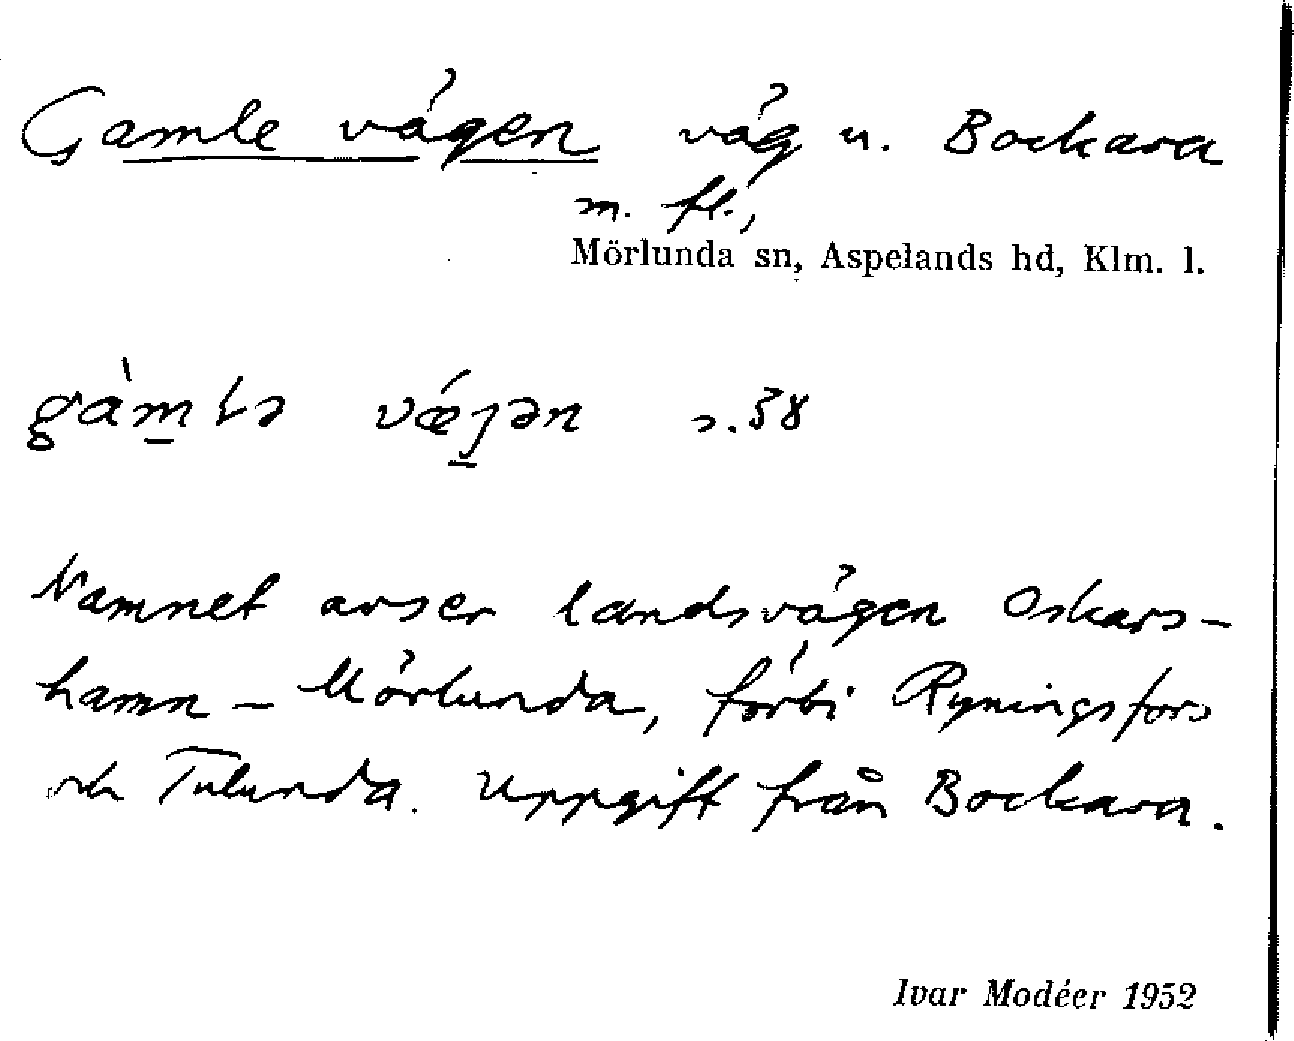 Gamle vägen väg u. Bockara
m. fl.,
Mörlunda sn, Aspelands hd, Klm. l.
gàm̲lə vǽj̲ən s. 38
Namnet avser landsvägen Oskars-
hamn – Mörlunda, förbi Ryningsfors
och Tulunda. Uppgift från Bockara.
Ivar Modéer 1952